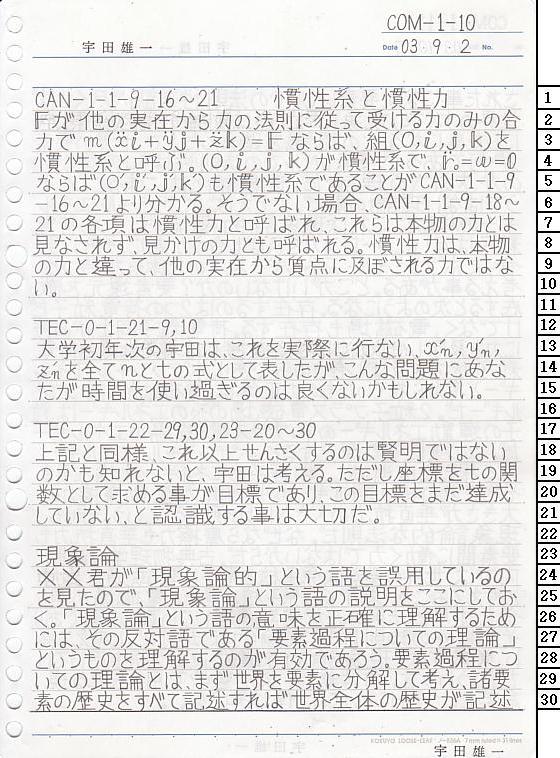 COM-1-10
宇田雄一
Date 03・9・2 No.
CAN-1-1-9-16～21　慣性系と慣性力
Fが他の実在から力の法則に従って受ける力のみの合
力で m(ẍi+ÿj+z̈k)=F ならば、組(O,i,j,k)を
慣性系と呼ぶ。(O,i,j,k)が慣性系で、r̈₀=ω=0
ならば(O',i',j',k')も慣性系であることがCAN-1-1-9
-16～21より分かる。そうでない場合、CAN-1-1-9-18～
21の各項は慣性力と呼ばれ、これらは本物の力とは
見なされず、見かけの力とも呼ばれる。慣性力は、本物
の力と違って、他の実在から質点に及ぼされる力ではな
い。
TEC-0-1-21-9,10
大学初年次の宇田は、これを実際に行ない、x'n,y'n,
z'nを全てnとtの式として表したが、こんな問題にあな
たが時間を使い過ぎるのは良くないかもしれない。
TEC-0-1-22-29,30,23-20～30
上記と同様、これ以上せんさくするのは賢明ではない
のかも知れないと、宇田は考える。ただし座標をtの関
数として求める事が目標であり、この目標をまだ達成
していない、と認識する事は大切だ。
現象論
××君が「現象論的」という語を誤用しているの
を見たので、「現象論」という語の説明をここにしてお
く。「現象論」という語の意味を正確に理解するため
には、その反対語である「要素過程についての理論」
というものを理解するのが有効であろう。要素過程につ
いての理論とは、まず世界を要素に分解して考え、諸要
素の歴史をすべて記述すれば世界全体の歴史が記述
KOKUYO LOOSE-LEAF ノ-836A 7 mm ruled × 31 lines
宇田雄一
1
2
3
4
5
6
7
8
9
10
11
12
13
14
15
16
17
18
19
20
21
22
23
24
25
26
27
28
29
30